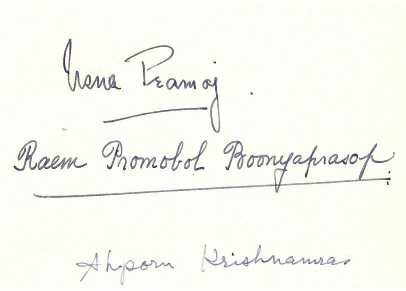 Usna Pramoj.
Raem Promobol Boonyaprasop.
Ahporn Krishnamra.